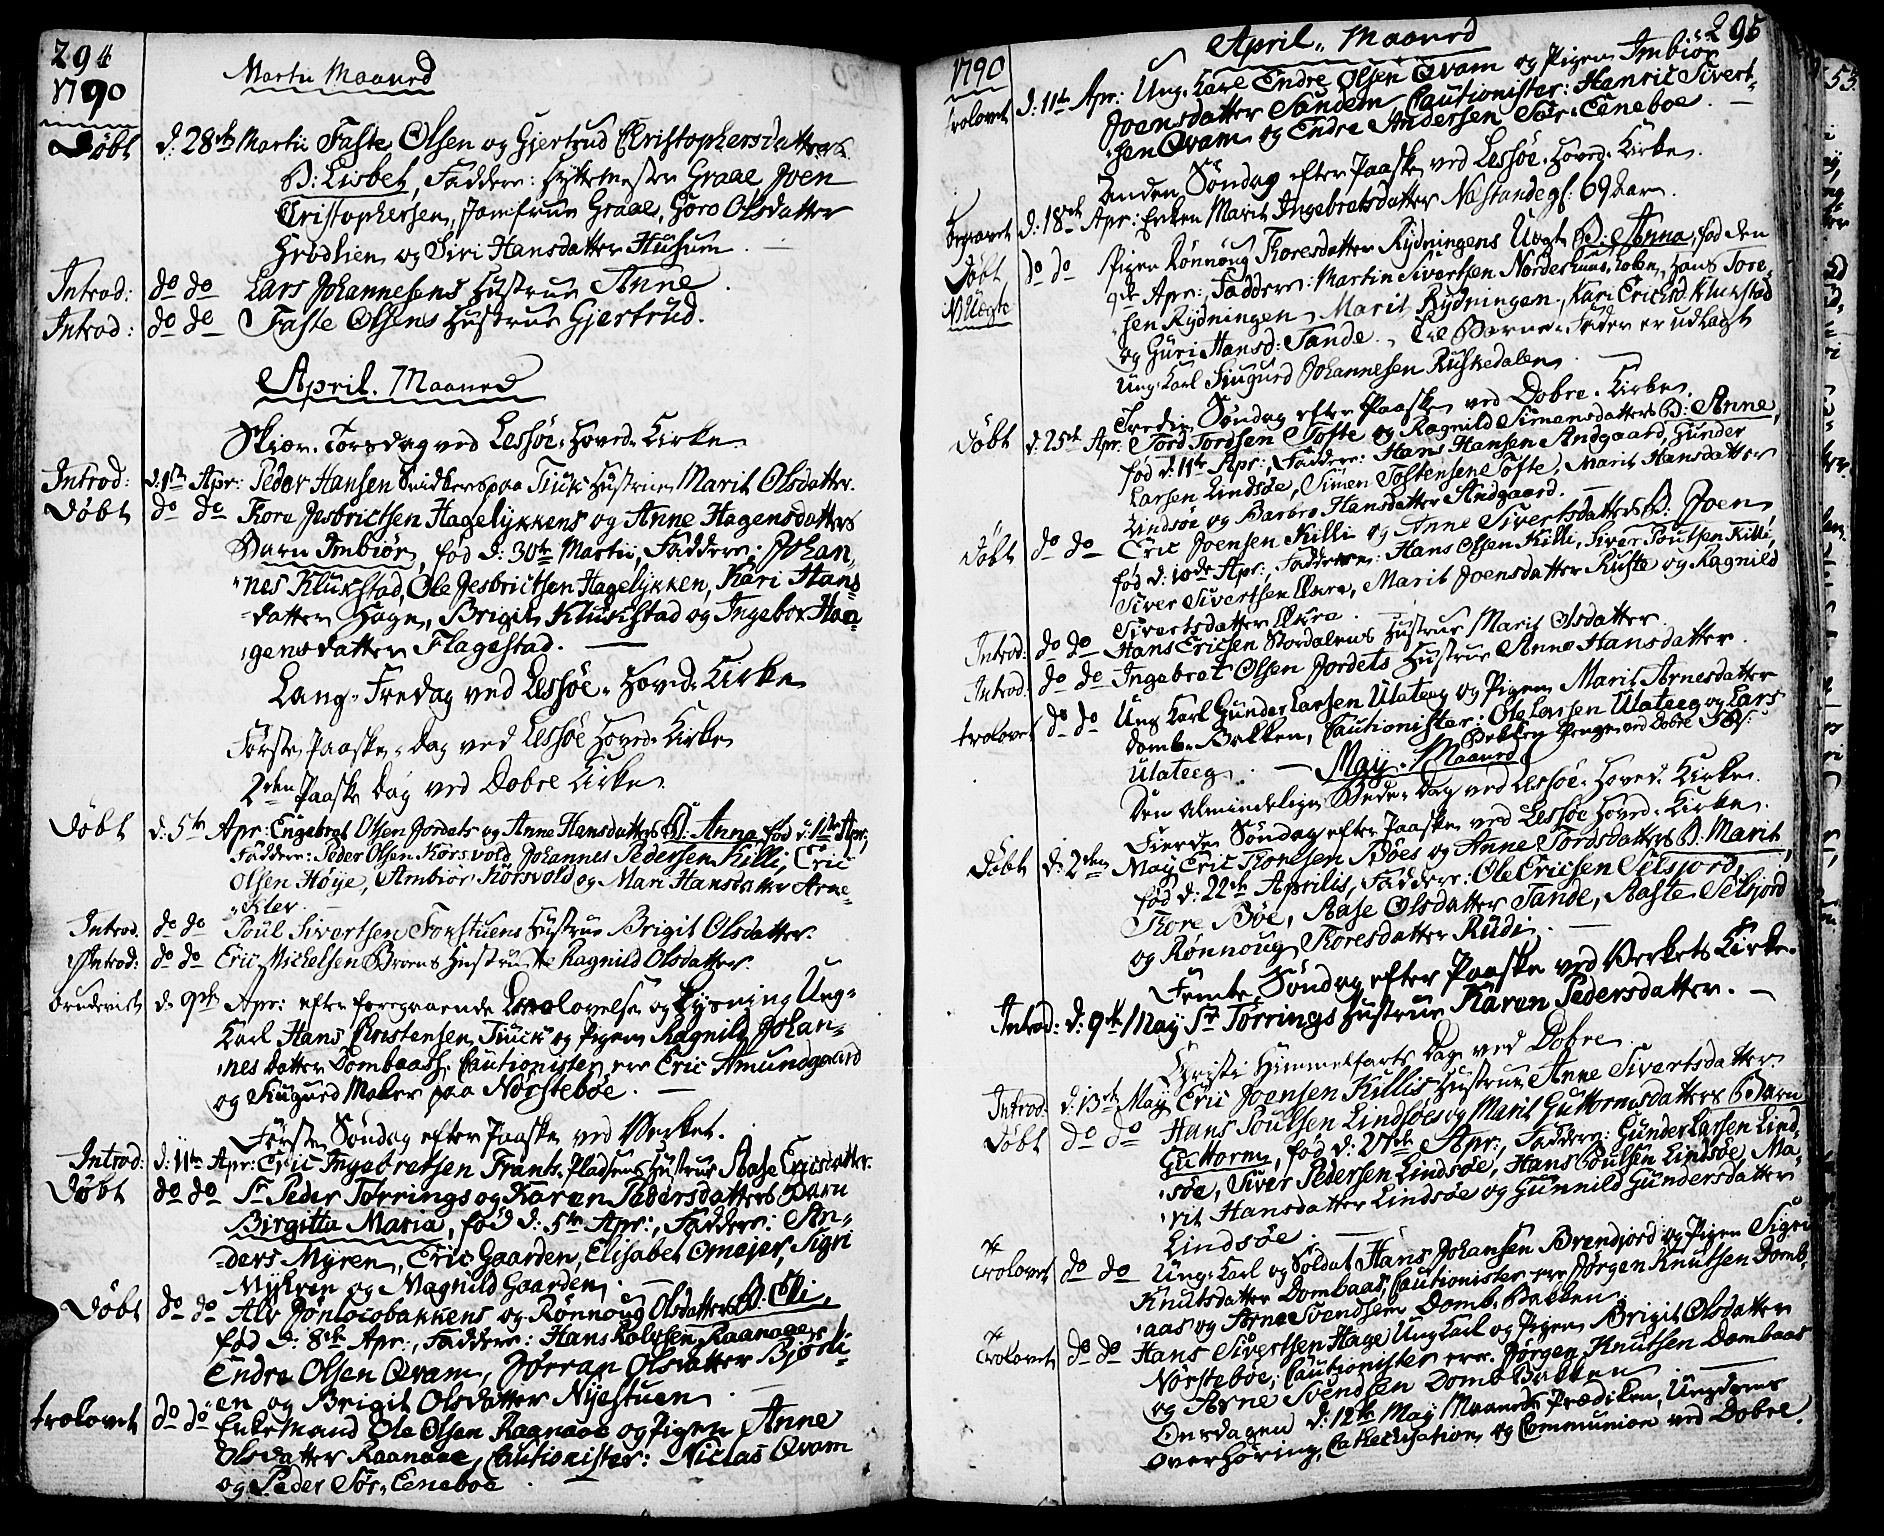 294
1790
Martii Maaned
Døbt d. 28de Martii Faste Olsen og Gjertrud Christophersdatters
B: Lisbet, Faddere: Hyttemester Graae Joen
Cristophersen, Jomfrue Graae, Goro Olsdatter
Grødlien og Siri Hansdatter Husum.
Introd: do do Lars Johannesens Hustrue Anne.
Introd: do do Faste Olsens Hustrue Gjertrud.
April. Maaned
Skiær-Torsdag ved Lessøe Hoved-Kirke
Introd: d. 1te Apr: Peder Hansen Snidkers paa Tiuk Hustrue Marit Olsdatter.
Døbt do do Tore Jesbrictsen Hagelykkens og Anne Hagensdatters
Barn Imbiør, fød d: 30te Martii, Faddere: Johan-
nes Klukstad, Ole Jesbrictsen Hagelykken, Kari Hans-
datter Hage, Brigit Klukstad og Ingebor Haa-
gensdatter Flagestad.
Lang-Fredag ved Lessøe-Hoved-Kirke
Første Paaske-Dag ved Lessøe Hoved-Kirke
2den Paaske Dag ved Dobre Kirke
Døbt d. 5te Apr: Engebret Olsen Jordets og Anne Hansdatters B. Anna fød d: 1te Apr;
Faddere: Peder Olsen Korsvold, Johannes Pedersen Killi, Eric
Olsen Høye, Ambior Korsvold og Mari Hansdatter Arne-
klev.
Introd. do do Poul Sivertsen Forstuens Hustrue Brigit Olsdatter.
Introd: do do Eric Mickelsen Hustrue Ragnild Olsdatter.
d. 9de Apr: efter foregaaende Trolovelse og Lysning Ung-
Karl Hans Christensen Tiuck og Pigen Ragnild Johan-
nes datter Dombaas, Cautionister ere Eric Amundgaard
og Siugurd Moker paa Norstebøe.
Første Søndag efter Paaske ved Verket.
Introd: d: 11te Apr: Eric Ingebretsen Frants-Pladsens Hustrue Aase Ericsdatter.
Døbt do do Sr Peder Tørrings og Karen Pedersdatters Barn
Birgitta Maria, fød d. 5te Apr:, Faddere: An-
ders Myren, Eric Gaarden, Elisabet Omejer, Sigri
Myhren og Magnild Gaarden.
Døbt do do Alv Jonlocobakkens og Rønnoug Olsdatters B. Eli,
fød d. 8de Apr:, Faddere: Hans Kolvsen Raanaae,
Endre Olsen Qvam, Jørran Olsdatter Bjorli-
en og Brigit Olsdatter Nyestuen.
trolovet do do Enkemand Ole Olsen Ragnaae og Pigen Anne
Olsdatter Raanaae, Cautionister: Niclas Qvam
og Peder Sør-Eeneboe.
295
1790
April, Maaned
trolovet d. 11te Apr: Ung-Karl Endre Olsen Qvam og Pigen Imbiør
Joensdatter Sandem Cautionister: Henric Sivert-
sen Qvam og Endre Andersen Sør-Eeneboe.
Anden Søndag efter Paaske ved Lessøe-Hoved-Kirke.
Begravet d. 18de Apr: Enken Marit Ingebretsdatter Næstande gl: 69 aar.
Døbt do do Pigen Rønnoug Thoresdatter Rydningens Uægte B: Anna, fød den
NB Uægte 9de Apr:, Faddere: Martin Sivertsen Nordeshuus, Loken, Hans Tore-
sen Rydningen, Marit Rydningen, Kari Erichsd. Klukstad
og Guri Hansd: Tande. Til Barne-Fader er udlagt
Ung-Karl Siugurd Johannesen Ruskedalen.
Tredie Søndag efter Paaske ved Dobre-Kirke.
Døbt d. 25de Apr: Tord Tordsen Tofte og Ragnild Simensdatters B: Anne,
fød d: 11te Apr:, Faddere: Hans Hansen Andgaard, Gunder
Larsen Lindsøe, Simen Tostensen Tofte, Marit Hansdatter
Lindsøe og Barbro Hansdatter Andgaard.
Døbt do do Eric Joensen Killi og Anne Sivertsdatters B. Joen,
fød d: 10de Apr:, Faddere: Hans Olsen Killi, Siver Poulsen Killi,
Siver Sivertsen Økra, Marit Joensdatter Ruste og Ragnild
Sivertsdatter Økra.
Introd: do do Hans Ericsen Stordalens Hustrue Marit Olsdatter.
Introd: do do Ingebret Olsen Jordets Hustrue Anne Hansdatter.
trolovet do do Ung-Karl Gunder Larsen Ulateeg og Pigen Marit Arnesdatter
Domb-Bakken, Cautionister: Ole Larsen Ulateeg og Lars
Ulateeg.
May-Maaned
Den almindelige Bede-Dag ved Lessøe-Hoved-Kirke.
Fierde Søndag efter Paaske ved Lessøe Hoved-Kirke.
Døbt d. 2den May Eric Thoresen Bøes og Anne Tordsdatters B. Marit,
fød d: 22de Aprilis, Faddere: Ole Ericsen Selsjord,
Thore Bøe, Aase Olsdatter Tande, Aaste Selsjord
og Rønnoug Thoresdatter Rudi.
Femte Søndag efter Paaske ved Verkets Kirke.
Introd: d: 9de May Sr Tørrings Hustrue Karen Pedersdatter.
Christi Himmelfarts Dag ved Dobre
Introd: d. 13de May Eric Joensen Killis Hustrue Anne Sivertsdatter.
Døbt do do Hans Poulsen Lindsøes og Marit Guttormsdatters Barn
Guttorm, fød d: 27de Apr:, Faddere: Gunder Larsen Lind-
søe, Siver Pedersen Lindsøe, Hans Poulsen Lindsøe, Ma-
rit Hansdatter Lindsøe og Gunnild Gundersdatter
Lindsøe.
Trolovet do do Ung-Karl og Soldat Hans Johansen Brendjord og Pigen Sigri
Knutsdatter Dombaas, Cautionister ere Jørgen Knutsen Domb-
aas og Arne Svendsen Domb-Bakken.
Trolovet do do Hans Sivertsen Hage Ung-Karl og Pigen Brigit Olsdatter
Norstebøe, Cautionister ere Jørgen Knutsen Dombaas
og Arne Svendsen Domb Bakken.
Onsdagen d. 12te May Maaneds Prædiken, Ungdoms
Overhøring, Cathechisation og Communion ved Dobre.